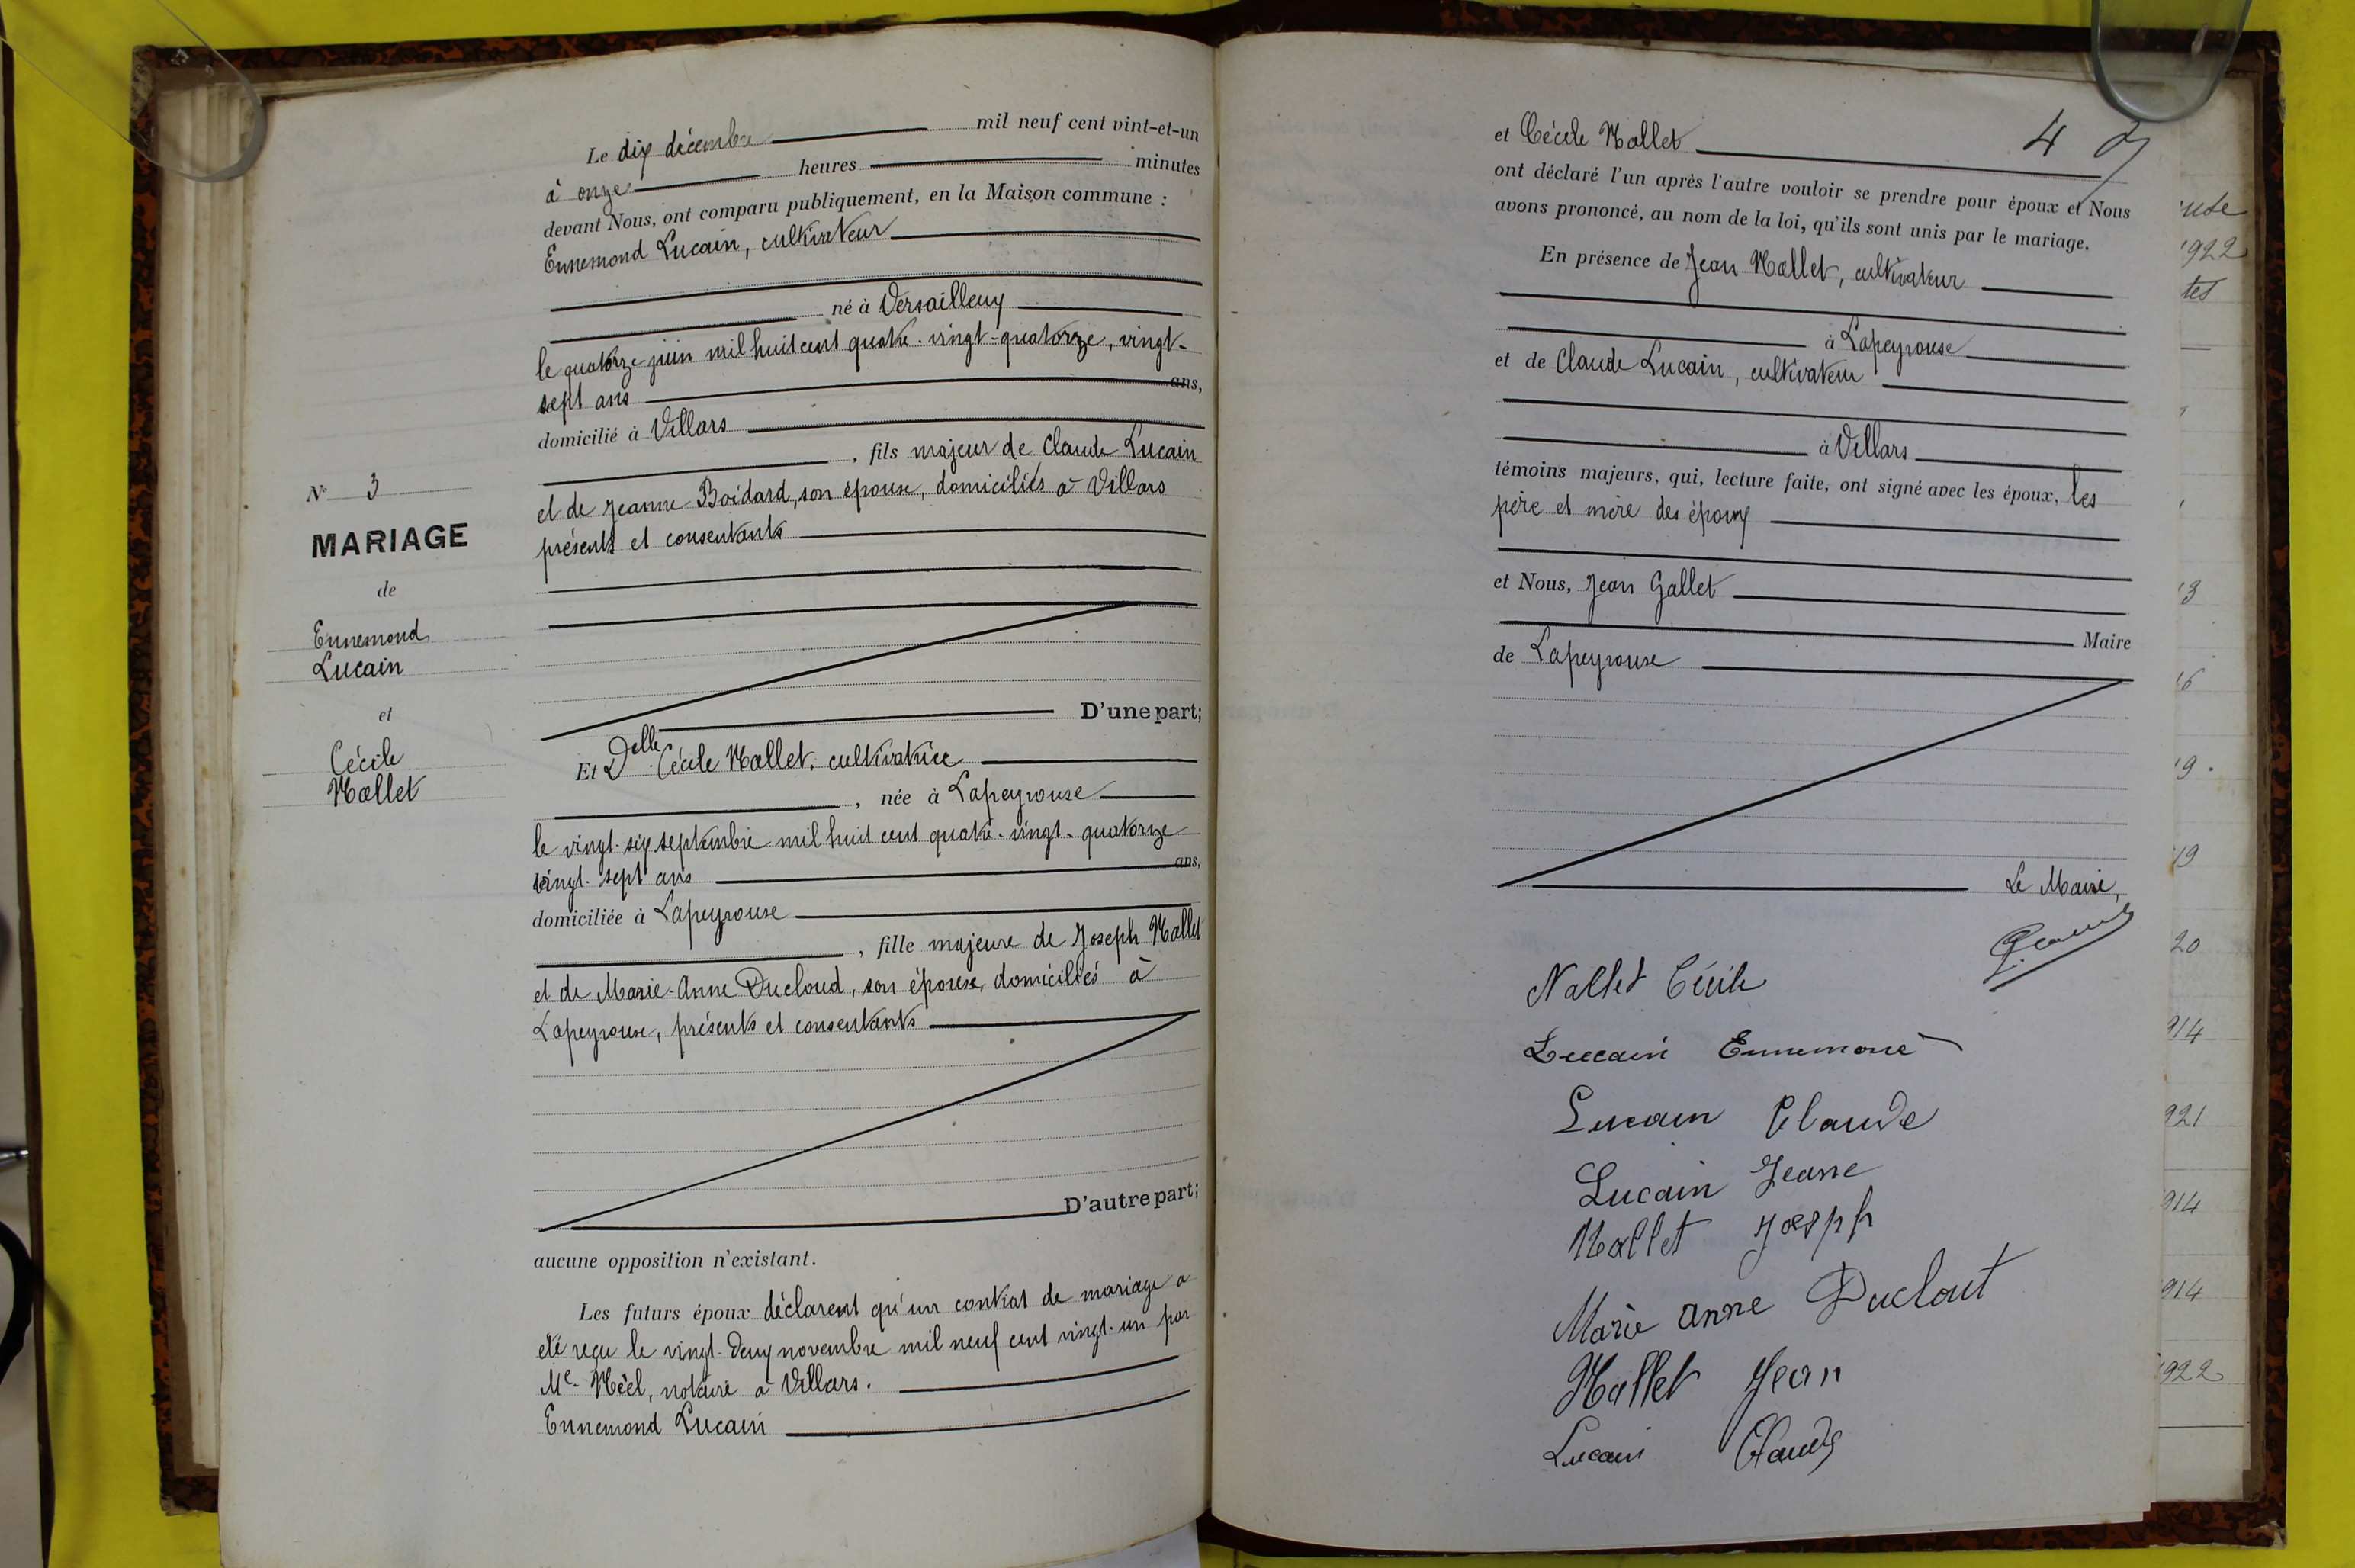 Le dix décembre mil neuf cent vint-et-un
à onze heures minutes
devant Nous, ont comparu publiquement, en la Maison commune :
Ennemond Lucain, cultivateur
né à Versailleux
le quatorze juin mil huit cent quatre-vingt-quatorze, vingt-
sept ans ans,
domicilié à Villars
, fils majeur de Claude Lucain
et de Jeanne Boidard, son épouse, domiciliés à Villars
présents et consentants
D'une part;
Et Delle Cécile Nallet, cultivatrice
, née à Lapeyrouse
le vingt-six septembre mil huit cent quatre-vingt-quatorze
vingt-sept ans ans,
domiciliée à Lapeyrouse
, fille majeure de Joseph Nallet
et de Marie-Anne Ducloud, son épouse, domiciliés à
Lapeyrouse, présents et consentants
D'autre part;
aucune opposition n'existant.
Les futurs époux déclarent qu'un contrat de mariage a
été reçu le vingt-deux novembre mil neuf cent vingt-un par
Me Néel, notaire à Villars.
Ennemond Lucain
N° 3
MARIAGE
de
Ennemond
Lucain
et
Cécile
Nallet
4
et Cécile Nallet
ont déclaré l'un après l'autre vouloir se prendre pour époux et Nous
avons prononcé, au nom de la loi, qu'ils sont unis par le mariage.
En présence de Jean Nallet, cultivateur
à Lapeyrouse
et de Claude Lucain, cultivateur
à Villars
témoins majeurs, qui, lecture faite, ont signé avec les époux, les
père et mère des époux
et Nous, Jean Gallet
Maire
de Lapeyrouse
Le Maire,
Nallet Cécile
Lucain Ennemond
Lucain Claude
Lucain Jeanne
Nallet Joseph
Marie Anne Duclout
Nallet Jean
Lucain Claude
1922
tes
13
16
19.
19
20
914
921
914
914
1922